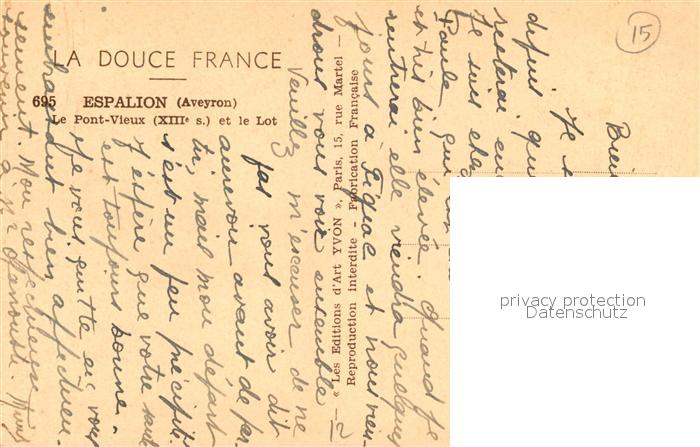 15
LA DOUCE FRANCE
695 ESPALION (Aveyron)
Le Pont-Vieux (XIIIe s.) et le Lot
« Les Editions d'Art YVON », Paris, 15, rue Martel —
Reproduction Interdite - Fabrication Française
Je s
depuis
resterai
Je suis
Paule
et très bien élevée. Quand je
rentrerai elle viendra quelques
jours à Figeac et nous vien-
drons vous voir ensemble
Veuillez m'excuser de ne
pas vous avoir dit
aurevoir avant de par-
tir, mais mon départ
s'est un peu précipité.
J'espère que votre santé
est toujours bonne.
Je vous quitte en vous
embrassant bien affectueu-
sement. Mon respectueux
souvenir à
privacy protection
Datenschutz